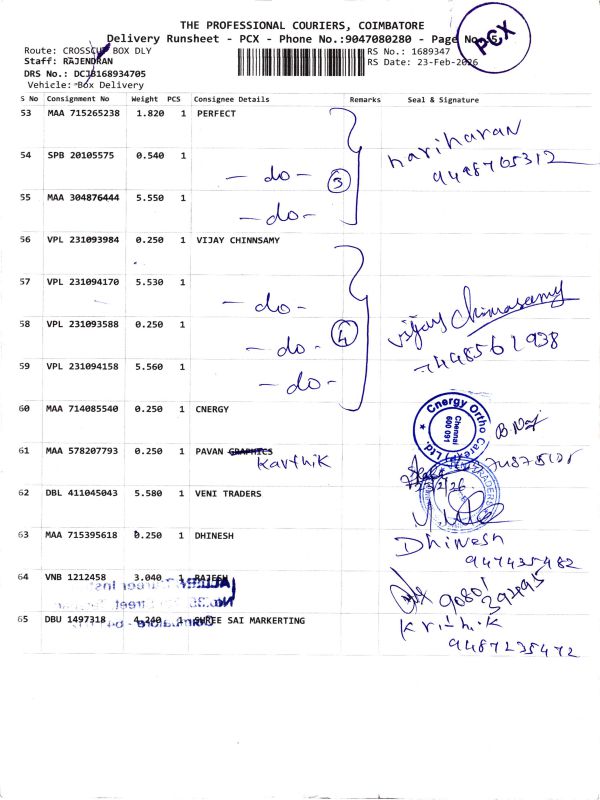 THE PROFESSIONAL COURIERS, COIMBATORE
Delivery Runsheet - PCX - Phone No.:9047080280 - Page No. 5
PCX
Route: CROSSCUT BOX DLY
RS No.: 1689347
Staff: RAJENDRAN
RS Date: 23-Feb-2026
DRS No.: DCJB168934705
Vehicle: Box Delivery
S No Consignment No Weight PCS Consignee Details Remarks Seal & Signature
53 MAA 715265238 1.820 1 PERFECT
hariharan
54 SPB 20105575 0.540 1
- do - 3
55 MAA 304876444 5.550 1
- do -
56 VPL 231093984 0.250 1 VIJAY CHINNSAMY
57 VPL 231094170 5.530 1
- do -
vijay Chinnasamy
58 VPL 231093588 0.250 1
- do - 4
59 VPL 231094158 5.560 1
- do -
60 MAA 714085540 0.250 1 CNERGY
Cnergy Ortho Care Ltd.
Chennai
600 091
61 MAA 578207793 0.250 1 PAVAN GRAPHICS
Karthik
62 DBL 411045043 5.580 1 VENI TRADERS
63 MAA 715395618 0.250 1 DHINESH
Dhinesh
947435482
64 VNB 1212458 3.040 1 RAJESH
65 DBU 1497318 4.240 1 SHREE SAI MARKERTING
Krithik
9487235472